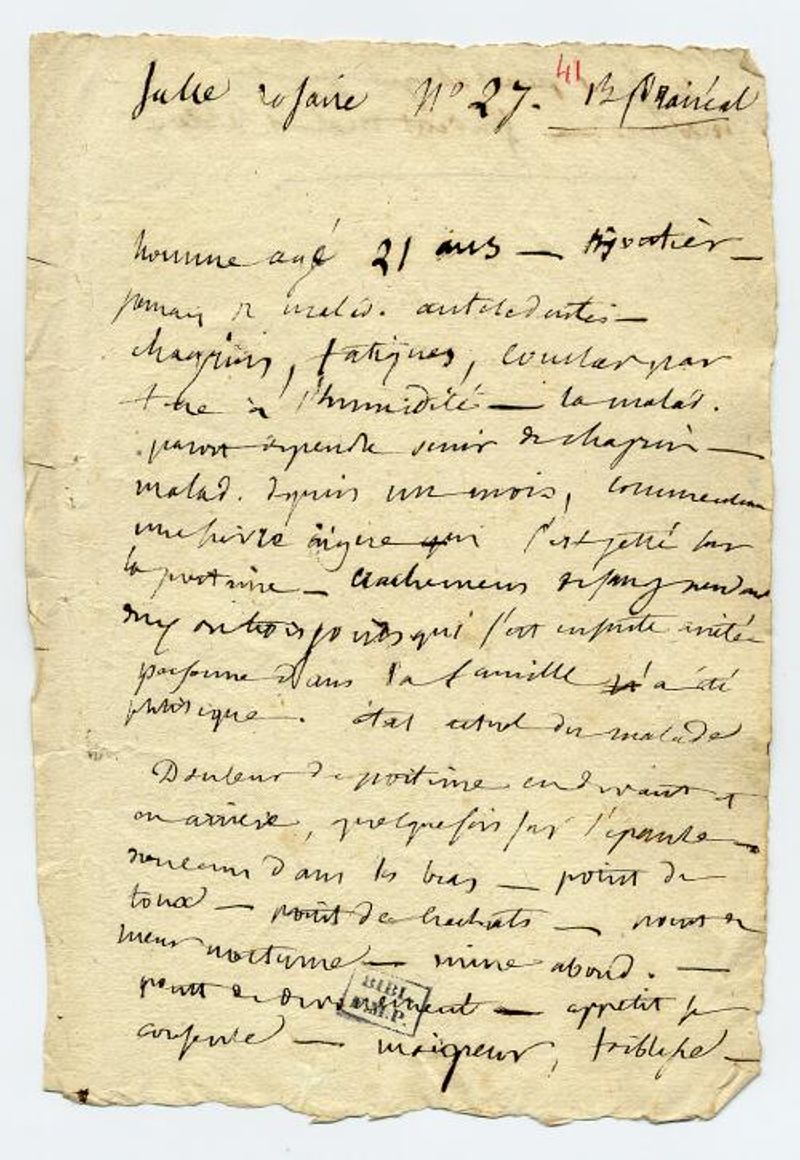 Salle rosaire N° 27. 41
homme agé 21 ans — Bijoutier —
jamais de malad. antecedentes —
chagrins, fatigues, coucher par
terre à l'humidité — la malad.
parait dependre venir de chagrin —
malad. depuis un mois,
une fievre qui s'est jetté sur
la poitrine — crachemens de sang pendant
deux ou trois jours qui s'est ensuite arrêtée
personne dans la famille n'a été
phtisique. état actuel du malade
Douleur de poitrine en devant et
en arriere, quelquefois sur l'epaule —
dans les bras — point de
toux — point de crachats — point de
sueur nocturne — urine abond. —
point de devoiement — appetit se
conserve — maigreur, foiblesse —
BIBL.